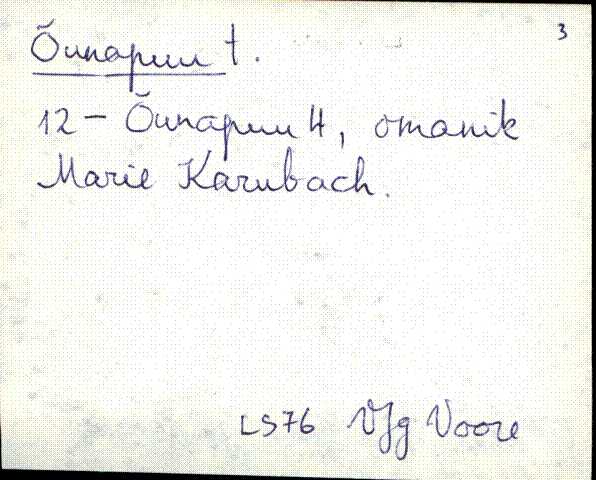 3
Õunapuu t.
12 – Õunapuu 4, omanik
Marie Karubach.
LS76 VJg Voore